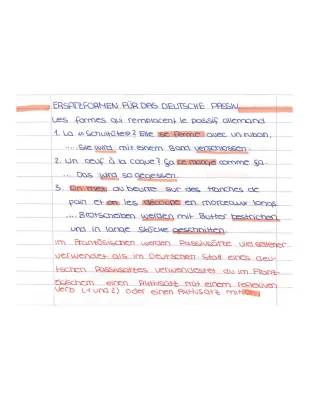 ERSATZFORMEN FÜR DAS DEUTSCHE PASSIV
Les formes qui remplacent le passif allemand
1. La «Schultüte»? Elle se ferme avec un ruban.
.... Sie wird mit einem Band verschlossen.
2. Un oeuf à la coque? Ça se mange comme ça.
... Das wird so gegessen.
3. On met du beurre sur des tranches de
pain et on les découpe en morceaux longs.
.... Brotscheiben werden mit Butter bestrichen
und in lange Stücke geschnitten.
Im Französischen werden Passivsätze viel seltener
verwendet als im Deutschen. Statt eines deu-
tschen Passivsatzes verwendest du im Franz-
ösischem einen Aktivsatz mit einem reflexiven
Verb (1 und 2) oder einen Aktivsatz mit on.